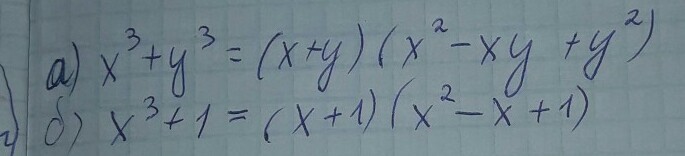 а) x³+y³ = (x+y)(x²-xy+y²)
б) x³+1 = (x+1)(x²-x+1)